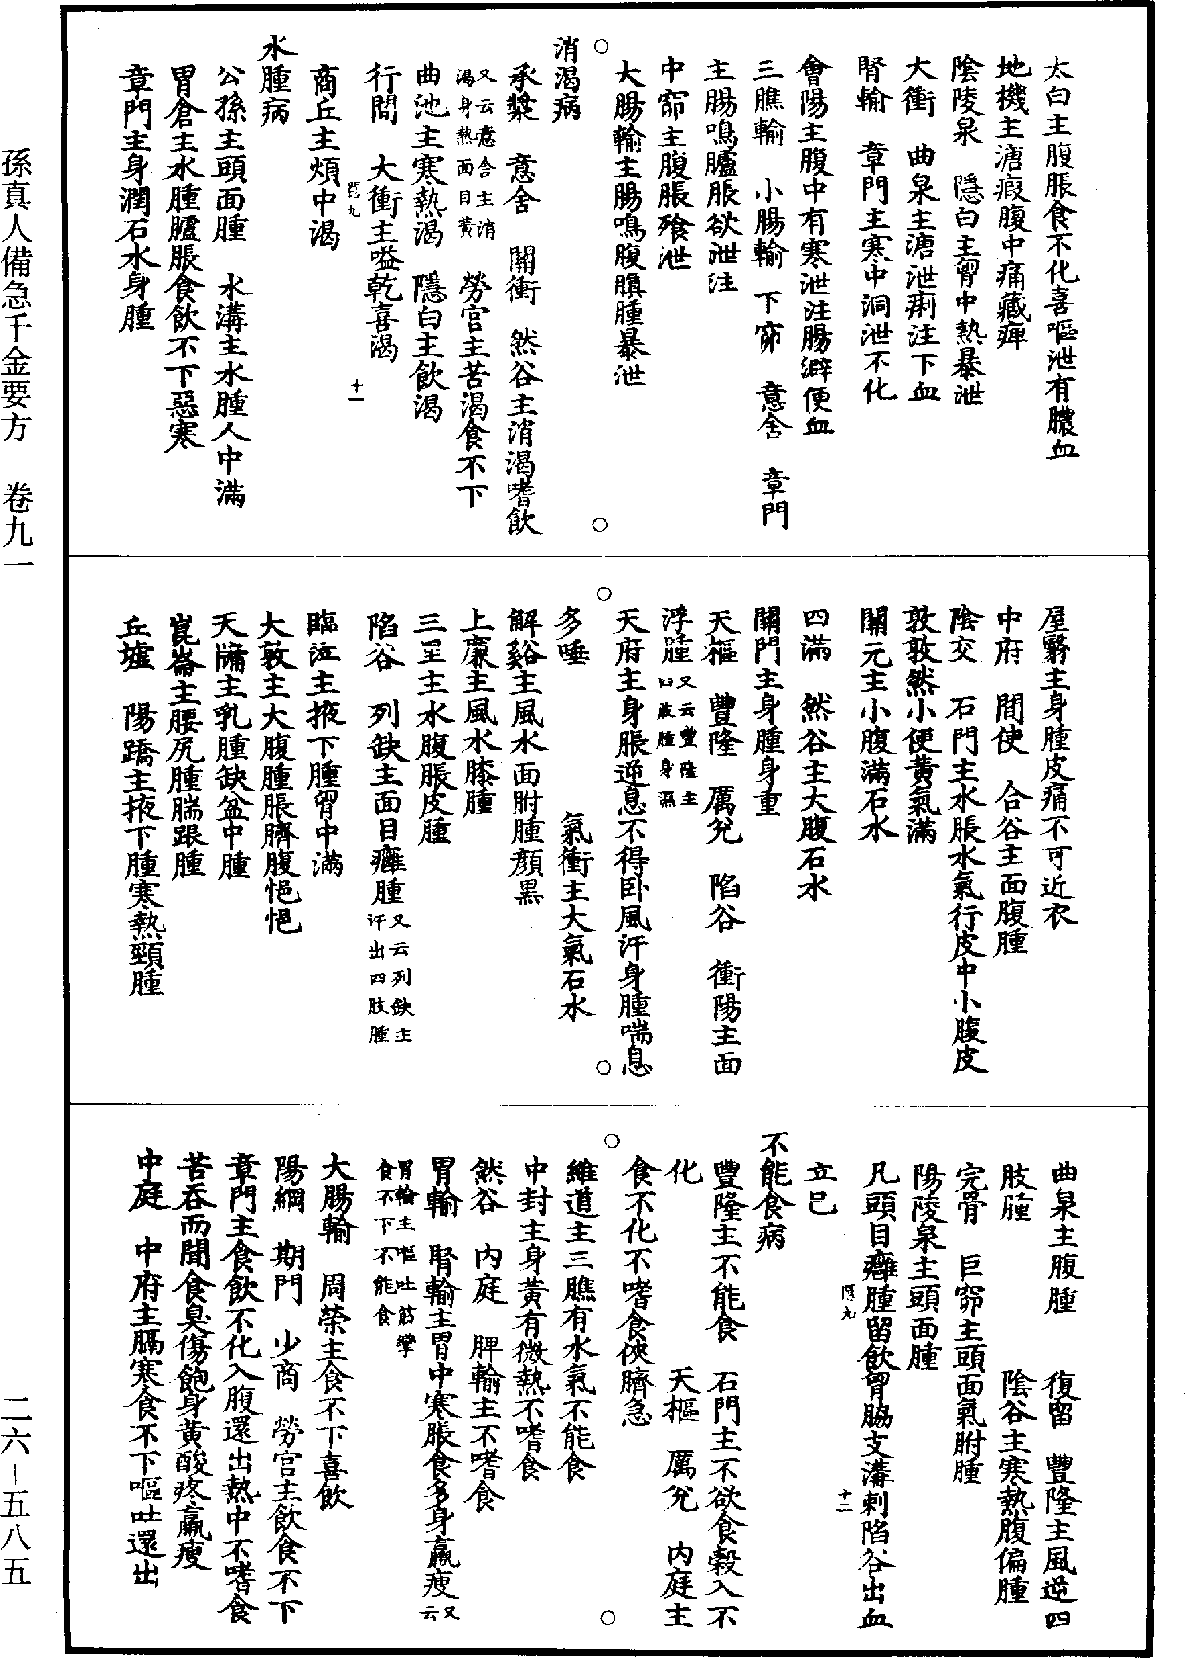 太白主腹脹食不化喜嘔泄有膿血
地機主溏瘕腹中痛藏痺
陰陵泉　隱白主胷中熱暴泄
大衝　曲泉主溏泄痢注下血
腎輸　章門主寒中洞泄不化
會陽主腹中有寒泄注腸澼便血
三膲輸　小腸輸　下窌　意舍　章門
主腸鳴臚脹欲泄注
中窌主腹脹飱泄
大腸輸主腸鳴腹䐜腫暴泄
消渴病
承漿　意舍　關衝　然谷主消渴嗜飲
又云意舍主消
渴身熱面目黃　勞宮主苦渴食不下
曲池主寒熱渴　隱白主飲渴
行間　大衝主嗌乾喜渴
商丘主煩中渴
水腫病
公孫主頭面腫　水溝主水腫人中滿
胃倉主水腫臚脹食飲不下惡寒
章門主身潤石水身腫
屋翳主身腫皮痛不可近衣
中府　間使　合谷主面腹腫
陰交　石門主水脹水氣行皮中小腹皮
敦敦然小便黃氣滿
關元主小腹滿石水
四滿　然谷主大腹石水
關門主身腫身重
天樞　豐隆　厲兌　陷谷　衝陽主面
浮腫又云豐隆主
四肢腫身濕
天府主身脹逆息不得卧風汗身腫喘息
多唾　氣衝主大氣石水
解谿主風水面胕腫顏黑
上廉主風水膝腫
三里主水腹脹皮腫
陷谷　列缺主面目癰腫又云列缺主
汗出四肢腫
臨泣主掖下腫胷中滿
大敦主大腹腫脹臍腹悒悒
天牖主乳腫缺盆中腫
崑崙主腰尻腫腨跟腫
丘墟　陽蹻主掖下腫寒熱頸腫
曲泉主腹腫　復留　豐隆主風逆四
肢腫　陰谷主寒熱腹偏腫
完骨　巨窌主頭面氣胕腫
陽陵泉主頭面腫
凡頭目癰腫留飲胷脇支滿刺陷谷出血
立已
不能食病
豐隆主不能食　石門主不欲食穀入不
化　天樞　厲兌　內庭主
食不化不嗜食俠臍急
維道主三膲有水氣不能食
中封主身黃有微熱不嗜食
然谷　內庭　脾輸主不嗜食
胃輸　腎輸主胃中寒脹食多身羸瘦又云
胃輸主嘔吐筋攣
食不下不能食
大腸輸　周榮主食不下喜飲
陽綱　期門　少商　勞宮主飲食不下
章門主食飲不化入腹還出熱中不嗜食
苦吞而聞食臭傷飽身黃酸疼羸瘦
中庭　中府主膈寒食不下嘔吐還出
孫真人備急千金要方　卷九一
二六－五八五
十一
十二